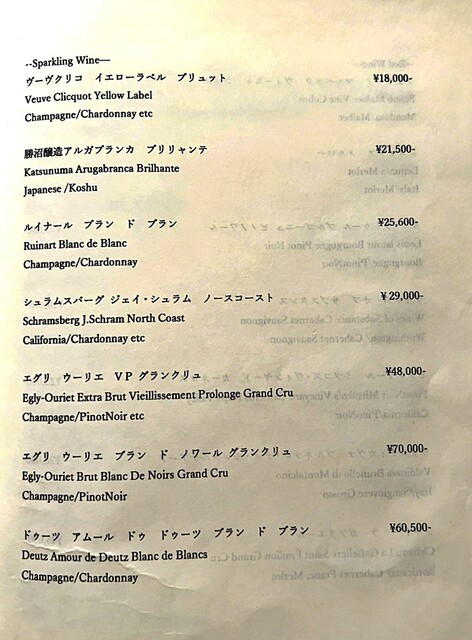 --Sparkling Wine—
ヴーヴクリコ　イエローラベル　ブリュット ¥18,000-
Veuve Clicquot Yellow Label
Champagne/Chardonnay etc
勝沼醸造アルガブランカ　ブリリャンテ ¥21,500-
Katsunuma Arugabranca Brilhante
Japanese /Koshu
ルイナール　ブラン　ド　ブラン ¥25,600-
Ruinart Blanc de Blanc
Champagne/Chardonnay
シュラムスバーグ　ジェイ・シュラム　ノースコースト ¥ 29,000-
Schramsberg J.Schram North Coast
California/Chardonnay etc
エグリ　ウーリエ　ＶＰ グランクリュ ¥48,000-
Egly-Ouriet Extra Brut Vieillissement Prolonge Grand Cru
Champagne/PinotNoir etc
エグリ　ウーリエ　ブラン　ド　ノワール グランクリュ ¥70,000-
Egly-Ouriet Brut Blanc De Noirs Grand Cru
Champagne/PinotNoir
ドゥーツ　アムール　ドゥ　ドゥーツ　ブラン　ド　ブラン ¥60,500-
Deutz Amour de Deutz Blanc de Blancs
Champagne/Chardonnay